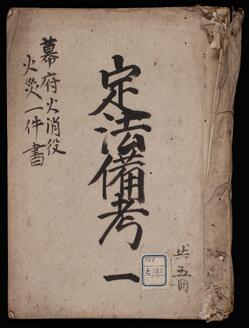 幕府火消役
火災一件書
定法備考 一
共五冊